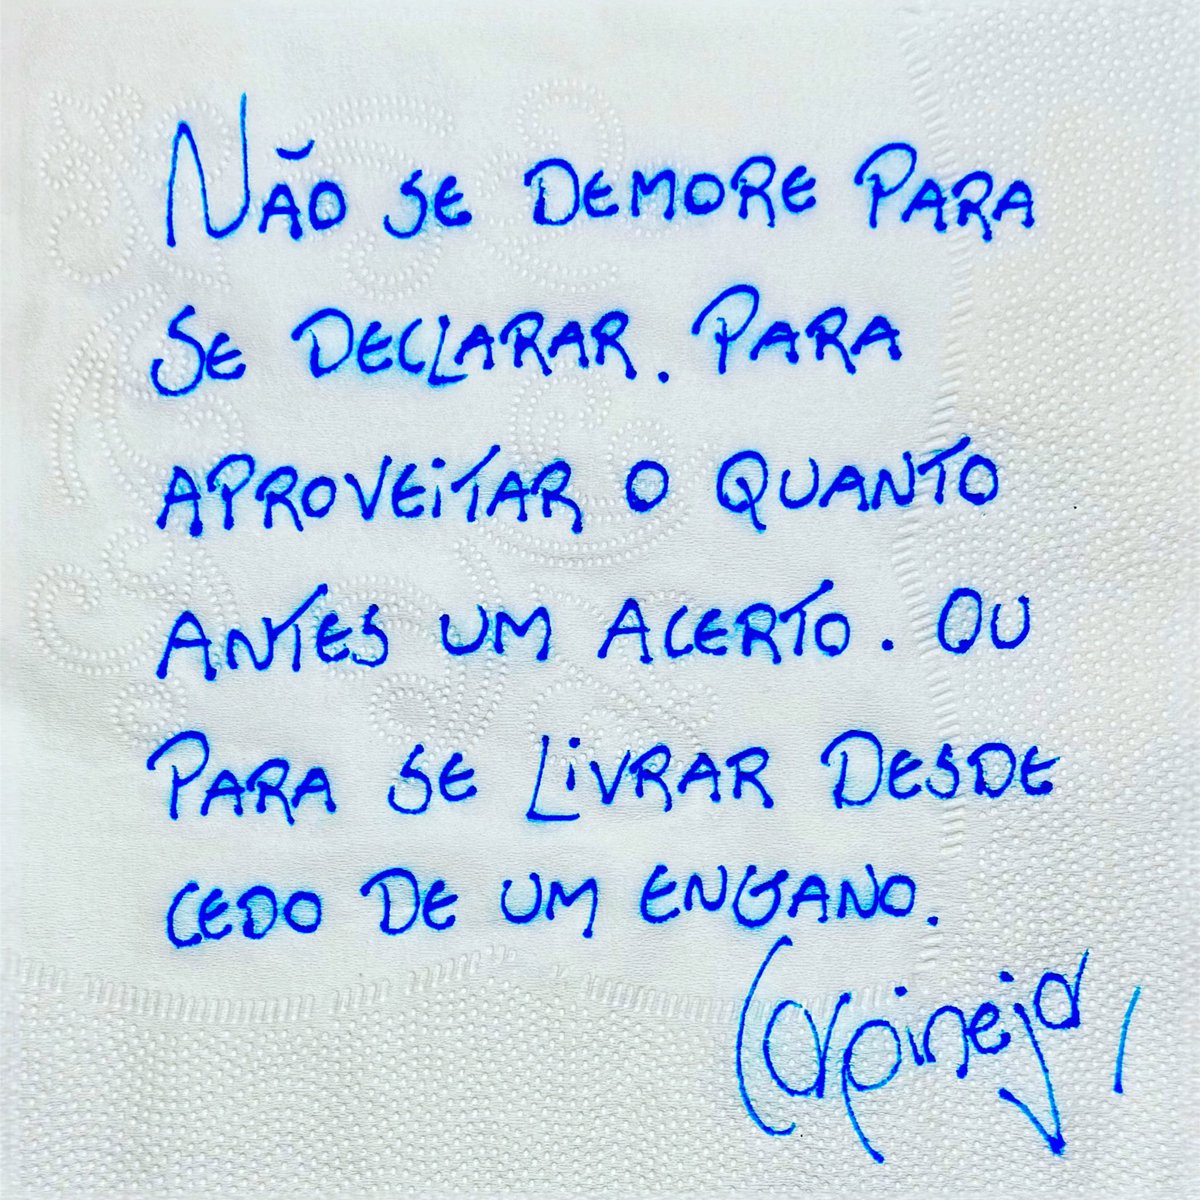 NÃO SE DEMORE PARA
SE DECLARAR. PARA
APROVEITAR O QUANTO
ANTES UM ACERTO. OU
PARA SE LIVRAR DESDE
CEDO DE UM ENGANO.
Carpinejar